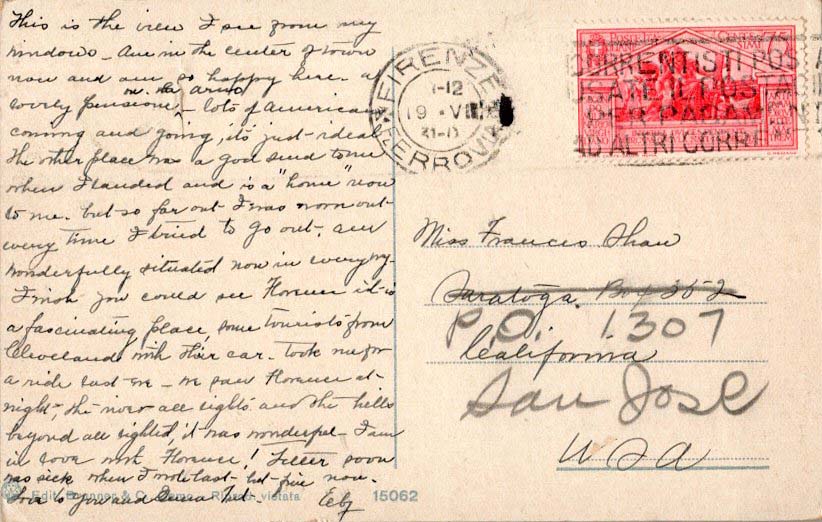 This is the view I see from my
windows - Am in the center of town
now and am so happy here. at
lovely pensione on the arno - lots of Americans
coming and going, it's just ideal
The other place was a god send to me
when I landed and is a "home" now
to me. but so far out I was worn out
every time I tried to go out. am
wonderfully situated now in every way.
I wish you could see Florence it is
a fascinating place. some tourists from
Cleveland with their car. Took me for
a ride last eve - we saw Florence at
night, the river all lights and the hills
beyond all lighted, it was wonderful - I am
in love with Florence! Letter soon
was sick when I wrote last - but fine now.
Love to you and
Edit. Brunner & C. Como. Riprod. vietata
15062
FIRENZE
FERROVIA
11-12
19 · VIII
31-
POSTE
CORRENTISTI POSTALI
PER PAGAMENTI
AD ALTRI CORRE
Miss Frances Shaw
Saratoga. Box 352
P.O. 1307
California
San Jose
USA